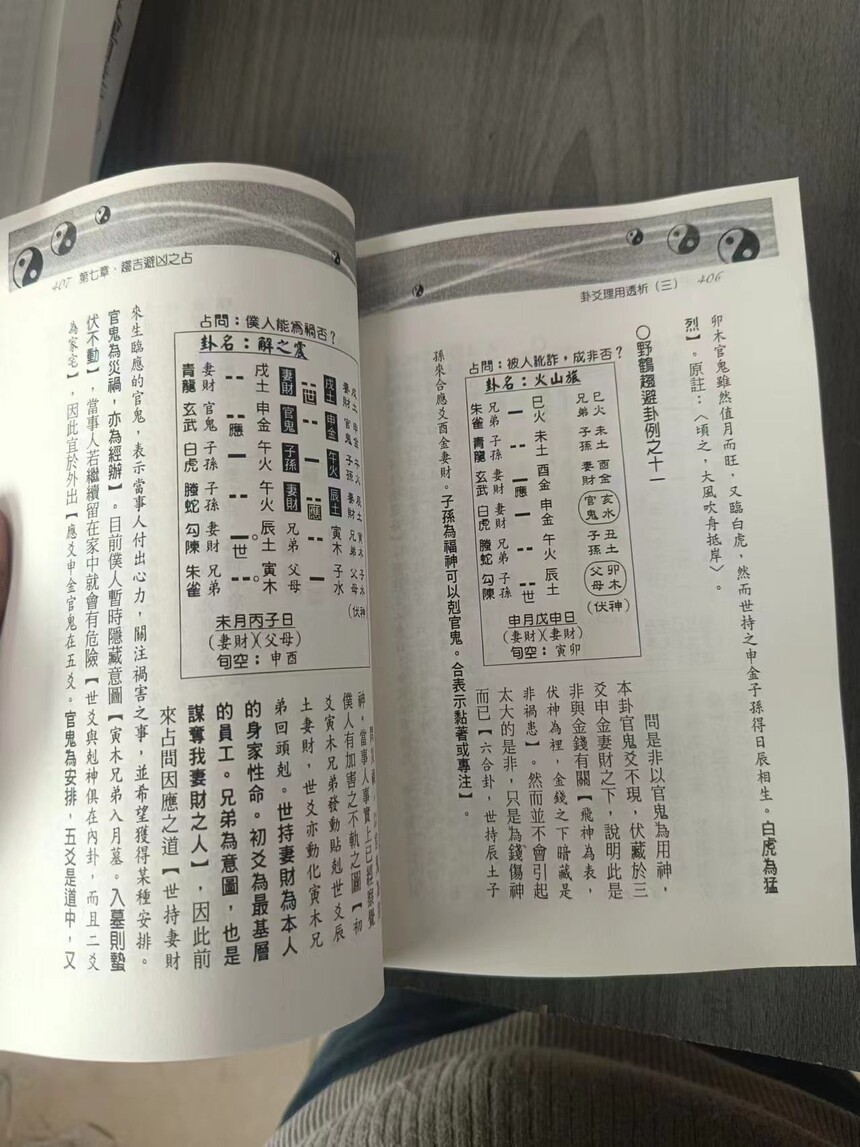 卦爻理用透析（三） 406
卯木官鬼雖然值月而旺，又臨白虎，然而世持之申金子孫得日辰相生。白虎為猛
烈】。原註：〈頃之，大風吹舟抵岸〉。
○野鶴趨避卦例之十一
占問：被人訛詐，成非否？
卦名：火山旅
朱雀 青龍 玄武 白虎 螣蛇 勾陳
兄弟 子孫 妻財 妻財 兄弟 子孫
應 世
巳火 未土 酉金 申金 午火 辰土
兄弟 子孫 妻財 官鬼 子孫 父母
巳火 未土 酉金 亥水 丑土 卯木
（伏神）
申月戊申日
（妻財）（妻財）
旬空：寅卯
問是非以官鬼為用神，
本卦官鬼爻不現，伏藏於三
爻申金妻財之下，說明此是
非與金錢有關【飛神為表，
伏神為裡，金錢之下暗藏是
非禍患】。然而並不會引起
太大的是非，只是為錢傷神
而已【六合卦，世持辰土子
孫來合應爻酉金妻財。子孫為福神可以剋官鬼。合表示黏著或專注】。
407 第七章．趨吉避凶之占
占問：僕人能為禍否？
卦名：解之震
青龍 玄武 白虎 螣蛇 勾陳 朱雀
妻財 官鬼 子孫 子孫 妻財 兄弟
應 世
戌土 申金 午火 午火 辰土 寅木
妻財 官鬼 子孫 妻財 兄弟 父母
世 應
戌土 申金 午火 辰土 寅木 子水
妻財 官鬼 子孫 妻財 兄弟 父母
戌土 申金 午火 辰土 寅木 子水
（伏神）
未月丙子日
（妻財）（父母）
旬空：申酉
神，當事人事實上已經察覺
僕人有加害之不軌之圖【初
爻寅木兄弟發動貼剋世爻辰
土妻財，世爻亦動化寅木兄
弟回頭剋。世持妻財為本人
的身家性命。初爻為最基層
的員工。兄弟為意圖，也是
謀奪我妻財之人】，因此前
來占問因應之道【世持妻財
來生臨應的官鬼，表示當事人付出心力，關注禍害之事，並希望獲得某種安排。
官鬼為災禍，亦為經辦】。目前僕人暫時隱藏意圖【寅木兄弟入月墓。入墓則蟄
伏不動】，當事人若繼續留在家中就會有危險【世爻與剋神俱在內卦，而且二爻
為家宅】，因此宜於外出【應爻申金官鬼在五爻。官鬼為安排，五爻是道中，又